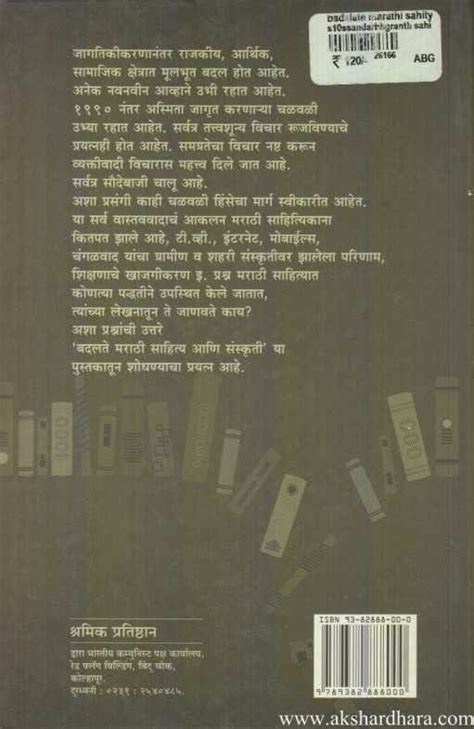 bsdalate marathi sahity
s10ssandarbhgranth sahi
₹ 120/- 26166 ABG
जागतिकीकरणानंतर राजकीय, आर्थिक,
सामाजिक क्षेत्रात मूलभूत बदल होत आहेत.
अनेक नवनवीन आव्हाने उभी रहात आहेत.
१९९० नंतर अस्मिता जागृत करणाऱ्या चळवळी
उभ्या रहात आहेत. सर्वत्र तत्त्वशून्य विचार रूजविण्याचे
प्रयत्नही होत आहेत. समग्रतेचा विचार नष्ट करून
व्यक्तीवादी विचारास महत्त्व दिले जात आहे.
सर्वत्र सौदेबाजी चालू आहे.
अशा प्रसंगी काही चळवळी हिंसेचा मार्ग स्वीकारीत आहेत.
या सर्व वास्तववादाचं आकलन मराठी साहित्यिकाना
कितपत झाले आहे, टी.व्ही., इंटरनेट, मोबाईल्स,
चंगळवाद यांचा ग्रामीण व शहरी संस्कृतीवर झालेला परिणाम,
शिक्षणाचे खाजगीकरण इ. प्रश्न मराठी साहित्यात
कोणत्या पद्धतीने उपस्थित केले जातात,
त्यांच्या लेखनातून ते जाणवते काय?
अशा प्रश्नांची उत्तरे
'बदलते मराठी साहित्य आणि संस्कृती' या
पुस्तकातून शोधण्याचा प्रयत्न आहे.
1000
श्रमिक प्रतिष्ठान
द्वारा भारतीय कम्युनिस्ट पक्ष कार्यालय,
रेड फ्लॅग बिल्डिंग, बिंदू चौक,
कोल्हापूर.
दूरध्वनी : ०२३१ : २५४०४८५.
ISBN 93-82888-00-0
9 789382 888000
www.akshardhara.com